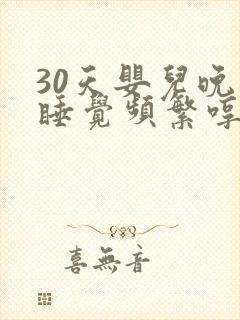 30天嬰兒晚
睡覺頻繁哼
喜無音